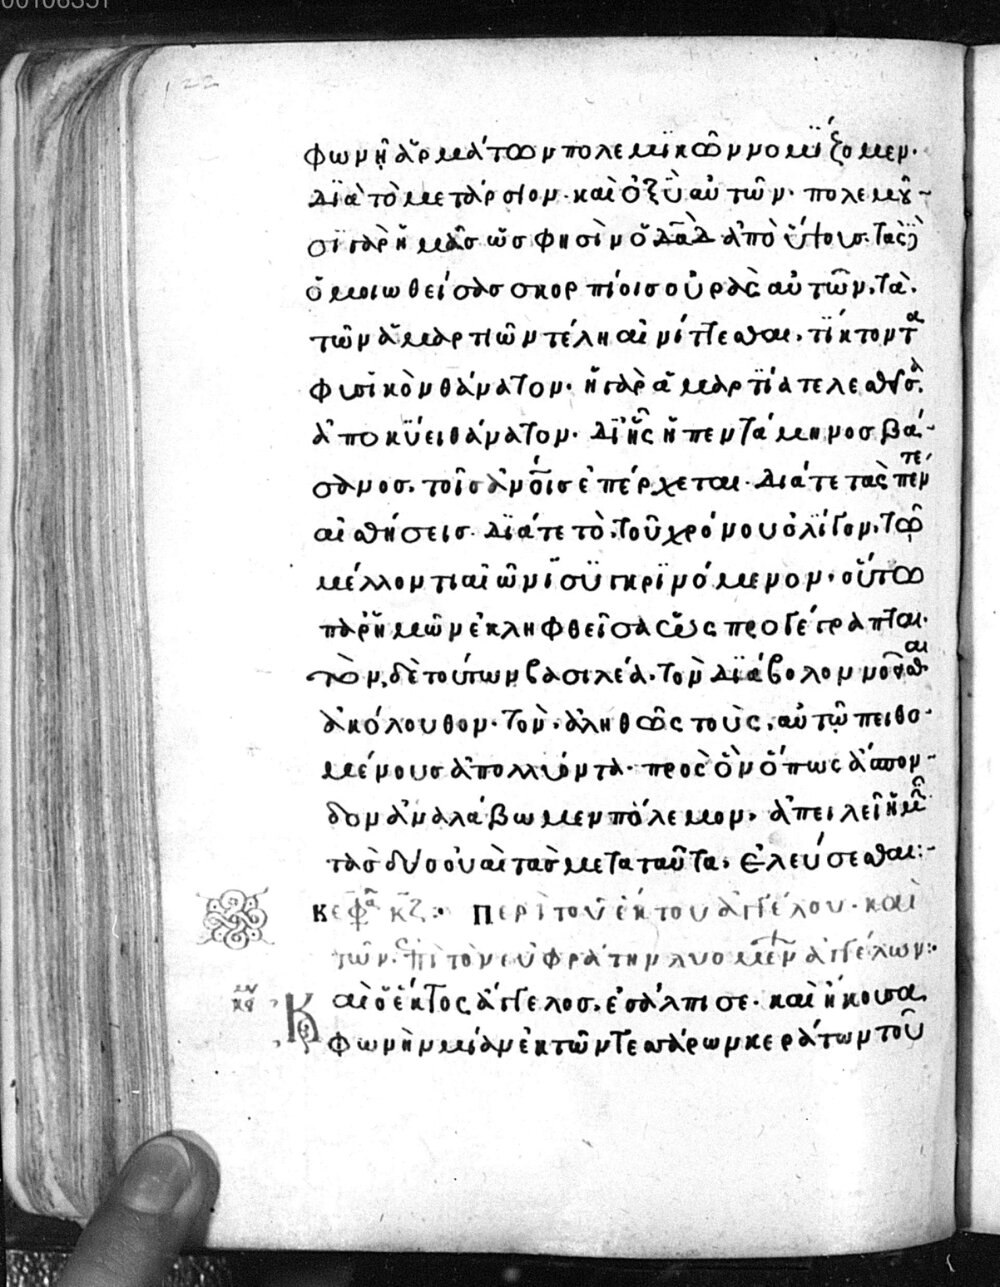 00108351
122
φωνὴ ἁρμάτων πολεμϊκῶν νομϊζομεν·
Διὰ τὸ μετάρσιον· καὶ ὀξὺ αὐτῶν· πολεμοῦ-
σϊ γὰρ ἡμᾶς ὥς φησὶν ὁ δᾱδ ἀπὸ ὕψους. Τὰς
ὁμοιωθείσας σκορπίοις οὐρὰς αὐτῶν, Τὰ
τῶν ἁμαρτιῶν τέλη αἰνίττεσθαι, τΐκτοντα
ψυχϊκὸν θάνατον· ἡ γὰρ ἁμαρτΐα τελεσθεῖσα
ἀποκΰει θάνατον· Δϊ ἧς ἡ πενταμηνος βά-
σανος, τοῖς ἀνοῖς ἐπέρχεται· Διά τε τὰς πέντε
αἰσθήσεις· Δϊά τε τὸ, τοῦ χρόνου ὀλϊγον, Τῷ
μέλλοντι αἰῶνϊ συγκρϊνόμενον, οὕτω
παρ ἡμῶν ἐκληφθεῖσα σαφῶς προγέγραπται·
τὸν, δὲ τούτων βασιλέα, Τὸν Δϊάβολον νοεῖσθαι
ἀκόλουθον· Τὸν, ἀληθῶς τοὺς, αὐτῷ πειθο-
μένους ἀπολλύοντα· πρὸς ὃν ὅπως ἄσπον-
δον ἀναλάβωμεν πόλεμον, ἀπειλεῖ ἡμῖν
τὰς δύο οὐαὶ τὰς μετὰ ταῦτα, ἐλεύσεσθαι:-
κεφα κζ:· Περὶ τοῦ ἕκτου ἀγγέλου· καὶ
τῶν ἐπὶ τὸν εὐφράτην λυομένων ἀγγέλων:·
Καὶ ὁ ἕκτος ἄγγελος, ἐσάλπισε· καὶ ἤκουσα
φωνὴν μίαν ἐκ τῶν τεσσάρων κεράτων τοῦ